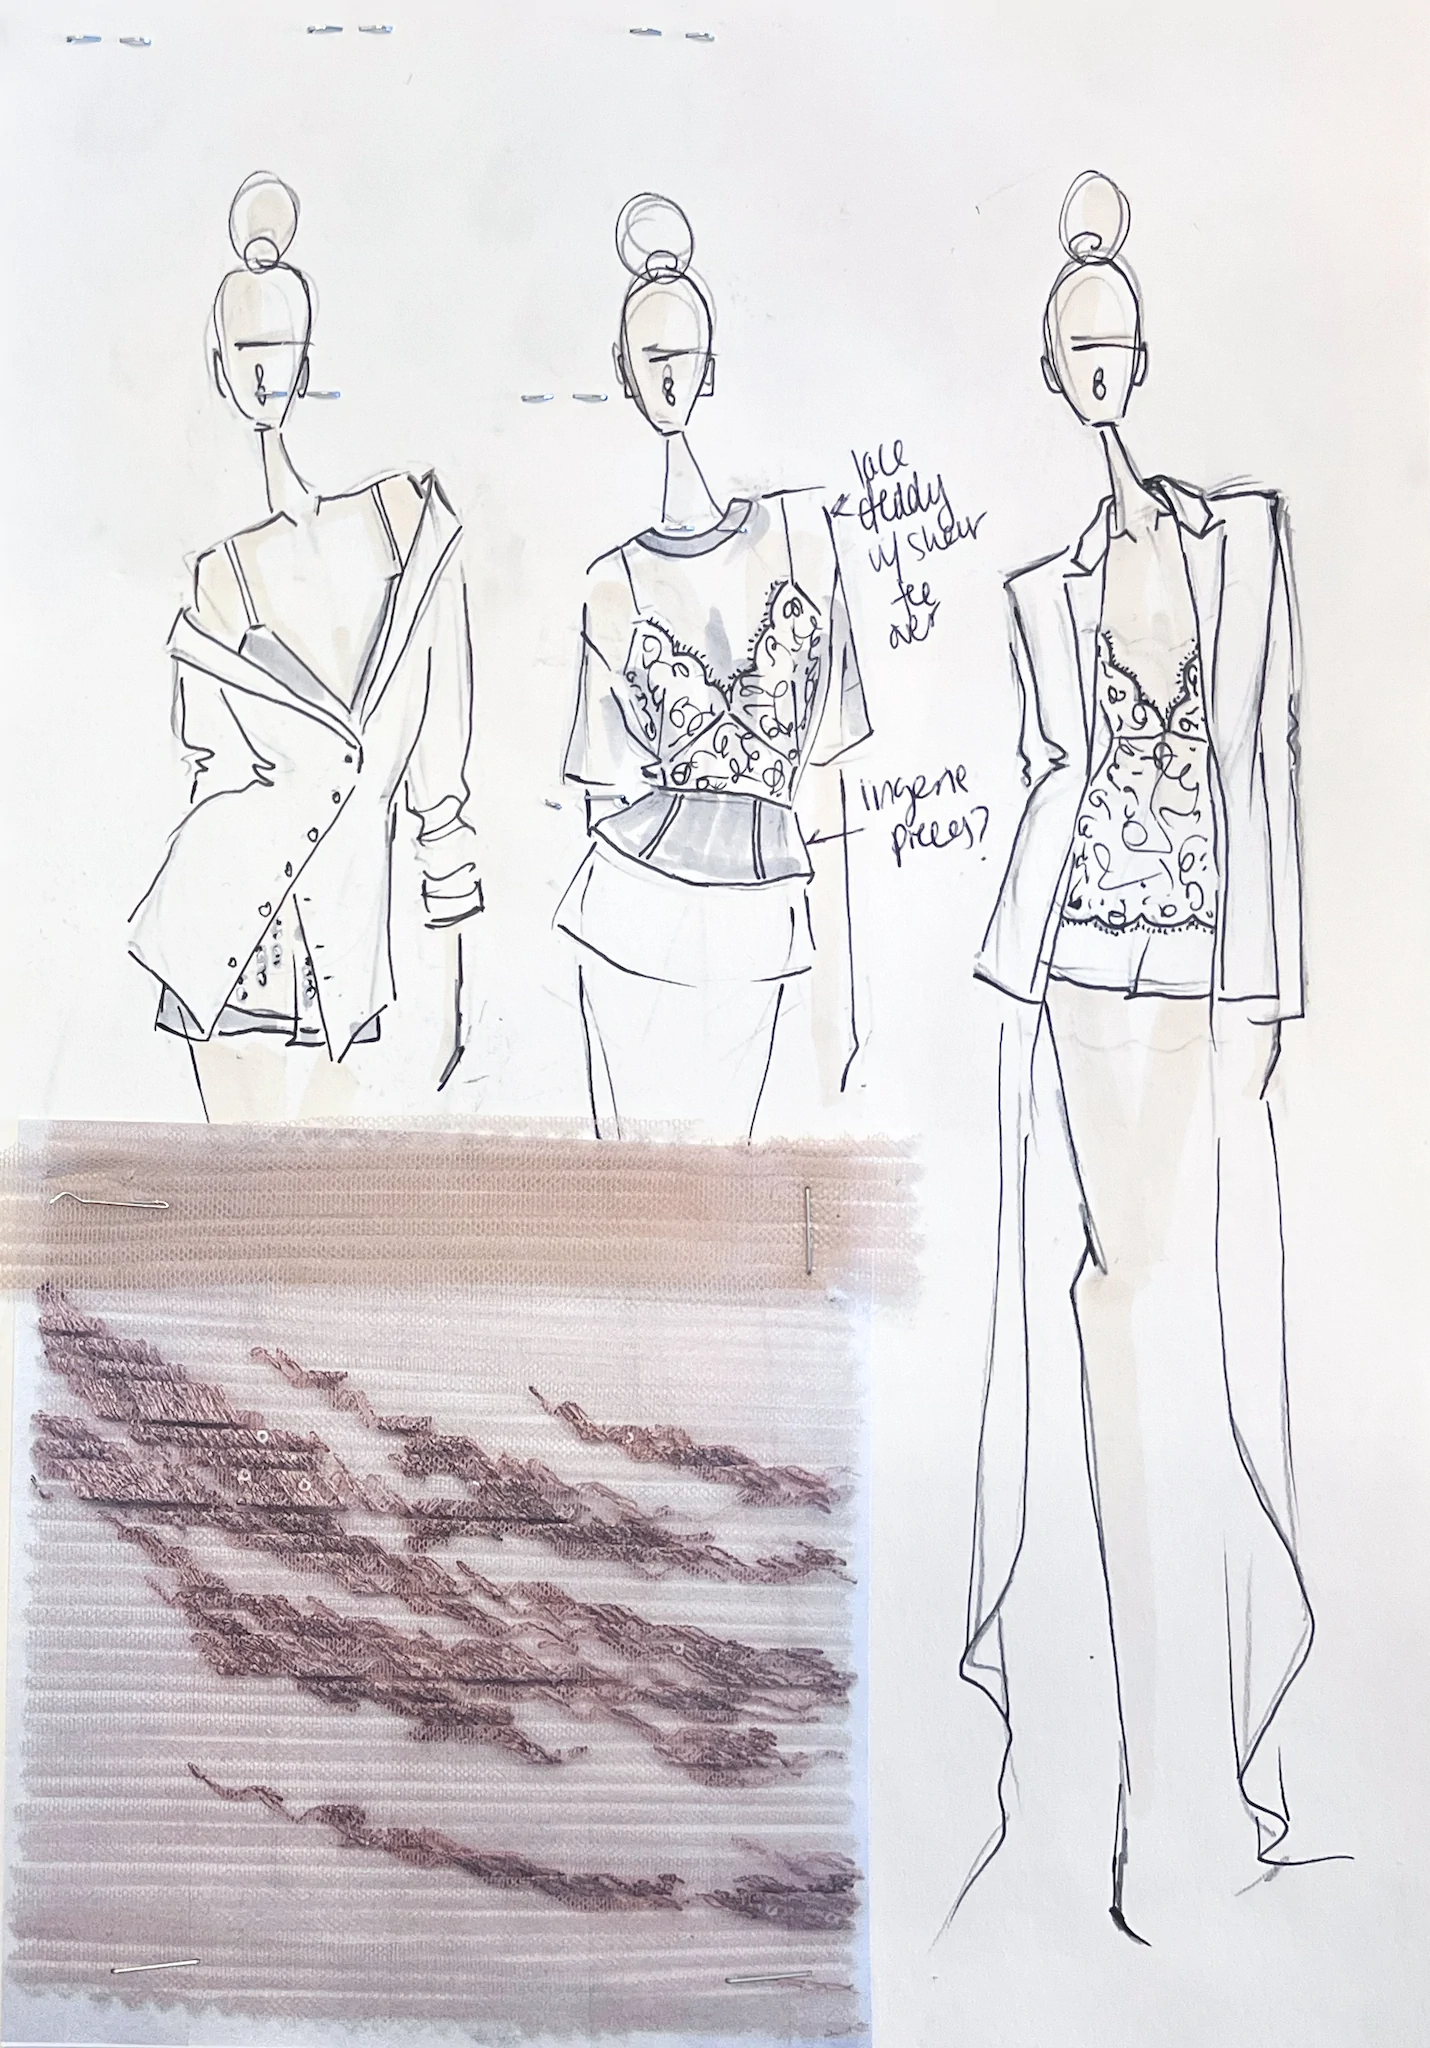 lace
teddy
w/ sheer
tee
over
lingerie
pieces?